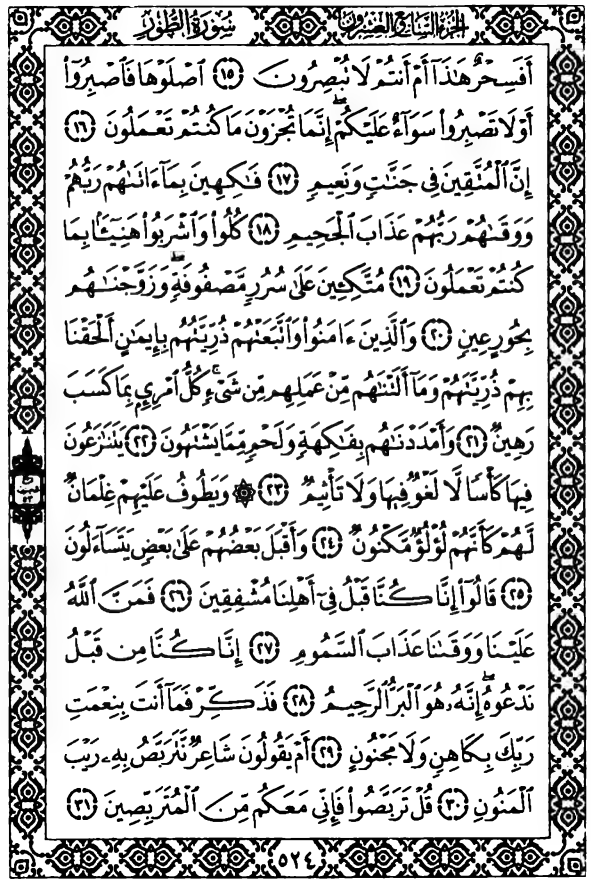 الجزء السابع والعشرون سورة الطور
أَفَسِحْرٌ هَـٰذَآ أَمْ أَنتُمْ لَا تُبْصِرُونَ ١٥ ٱصْلَوْهَا فَٱصْبِرُوٓا۟
أَوْ لَا تَصْبِرُوا۟ سَوَآءٌ عَلَيْكُمْ ۖ إِنَّمَا تُجْزَوْنَ مَا كُنتُمْ تَعْمَلُونَ ١٦
إِنَّ ٱلْمُتَّقِينَ فِى جَنَّـٰتٍ وَنَعِيمٍ ١٧ فَـٰكِهِينَ بِمَآ ءَاتَىٰهُمْ رَبُّهُمْ
وَوَقَىٰهُمْ رَبُّهُمْ عَذَابَ ٱلْجَحِيمِ ١٨ كُلُوا۟ وَٱشْرَبُوا۟ هَنِيٓـًٔۢا بِمَا
كُنتُمْ تَعْمَلُونَ ١٩ مُتَّكِـِٔينَ عَلَىٰ سُرُرٍ مَّصْفُوفَةٍ ۖ وَزَوَّجْنَـٰهُم
بِحُورٍ عِينٍ ٢٠ وَٱلَّذِينَ ءَامَنُوا۟ وَٱتَّبَعَتْهُمْ ذُرِّيَّتُهُم بِإِيمَـٰنٍ أَلْحَقْنَا
بِهِمْ ذُرِّيَّتَهُمْ وَمَآ أَلَتْنَـٰهُم مِّنْ عَمَلِهِم مِّن شَىْءٍ ۚ كُلُّ ٱمْرِئٍۭ بِمَا كَسَبَ
رَهِينٌ ٢١ وَأَمْدَدْنَـٰهُم بِفَـٰكِهَةٍ وَلَحْمٍ مِّمَّا يَشْتَهُونَ ٢٢ يَتَنَـٰزَعُونَ
فِيهَا كَأْسًا لَّا لَغْوٌ فِيهَا وَلَا تَأْثِيمٌ ٢٣ ۞ وَيَطُوفُ عَلَيْهِمْ غِلْمَانٌ
لَّهُمْ كَأَنَّهُمْ لُؤْلُؤٌ مَّكْنُونٌ ٢٤ وَأَقْبَلَ بَعْضُهُمْ عَلَىٰ بَعْضٍ يَتَسَآءَلُونَ
٢٥ قَالُوٓا۟ إِنَّا كُنَّا قَبْلُ فِىٓ أَهْلِنَا مُشْفِقِينَ ٢٦ فَمَنَّ ٱللَّهُ
عَلَيْنَا وَوَقَىٰنَا عَذَابَ ٱلسَّمُومِ ٢٧ إِنَّا كُنَّا مِن قَبْلُ
نَدْعُوهُ ۖ إِنَّهُۥ هُوَ ٱلْبَرُّ ٱلرَّحِيمُ ٢٨ فَذَكِّرْ فَمَآ أَنتَ بِنِعْمَتِ
رَبِّكَ بِكَاهِنٍ وَلَا مَجْنُونٍ ٢٩ أَمْ يَقُولُونَ شَاعِرٌ نَّتَرَبَّصُ بِهِۦ رَيْبَ
ٱلْمَنُونِ ٣٠ قُلْ تَرَبَّصُوا۟ فَإِنِّى مَعَكُم مِّنَ ٱلْمُتَرَبِّصِينَ ٣١
٥٢٤